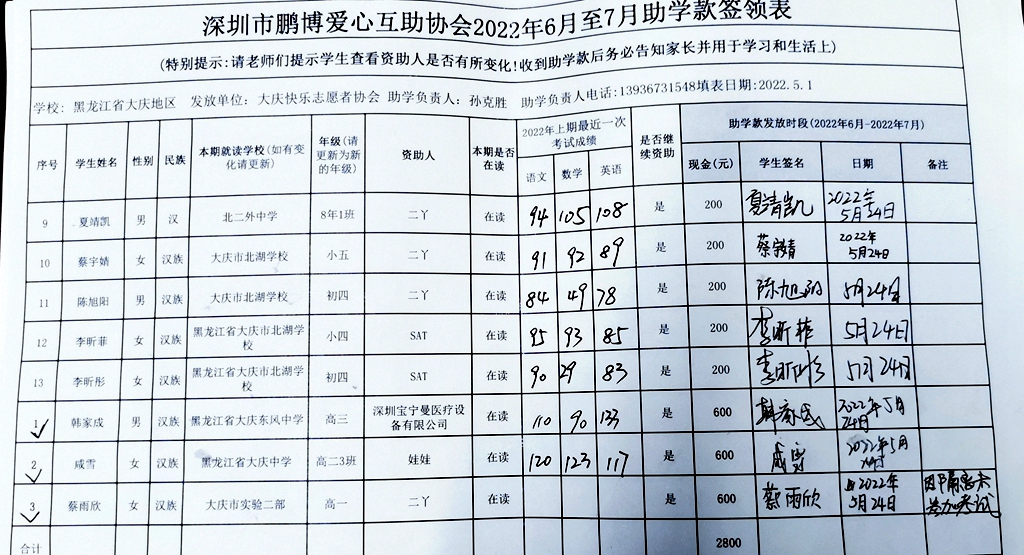 深圳市鹏博爱心互助协会2022年6月至7月助学款签领表
(特别提示:请老师们提示学生查看资助人是否有所变化!收到助学款后务必告知家长并用于学习和生活上)
学校: 黑龙江省大庆地区 发放单位: 大庆快乐志愿者协会 助学负责人: 孙克胜 助学负责人电话:13936731548填表日期:2022.5.1
序号 学生姓名 性别 民族 本期就读学校(如有变化请更新) 年级(请更新为新的年级) 资助人 本期是否在读 2022年上期最近一次考试成绩 语文 数学 英语 是否继续资助 助学款发放时段(2022年6月-2022年7月) 现金(元) 学生签名 日期 备注
9 夏靖凯 男 汉 北二外中学 8年1班 二丫 在读 94 105 108 是 200 夏靖凯 2022年5月24日
10 蔡宇婧 女 汉族 大庆市北湖学校 小五 二丫 在读 91 92 89 是 200 蔡宇婧 2022年5月24日
11 陈旭阳 男 汉族 大庆市北湖学校 初四 二丫 在读 84 49 78 是 200 陈旭阳 5月24日
12 李昕菲 女 汉族 黑龙江省大庆市北湖学校 小四 SAT 在读 95 93 85 是 200 李昕菲 5月24日
13 李昕彤 女 汉族 黑龙江省大庆市北湖学校 初四 SAT 在读 90 29 83 是 200 李昕彤 5月24日
1 韩家成 男 汉族 黑龙江省大庆东风中学 高三 深圳宝宁曼医疗设备有限公司 在读 110 90 133 是 600 韩家成 2022年5月24日
2 咸雪 女 汉族 黑龙江省大庆中学 高二3班 娃娃 在读 120 123 117 是 600 咸雪 2022年5月
3 蔡雨欣 女 汉族 大庆市实验二部 高一 二丫 在读 是 600 蔡雨欣 2022年5月24日 参加考试
合计 2800